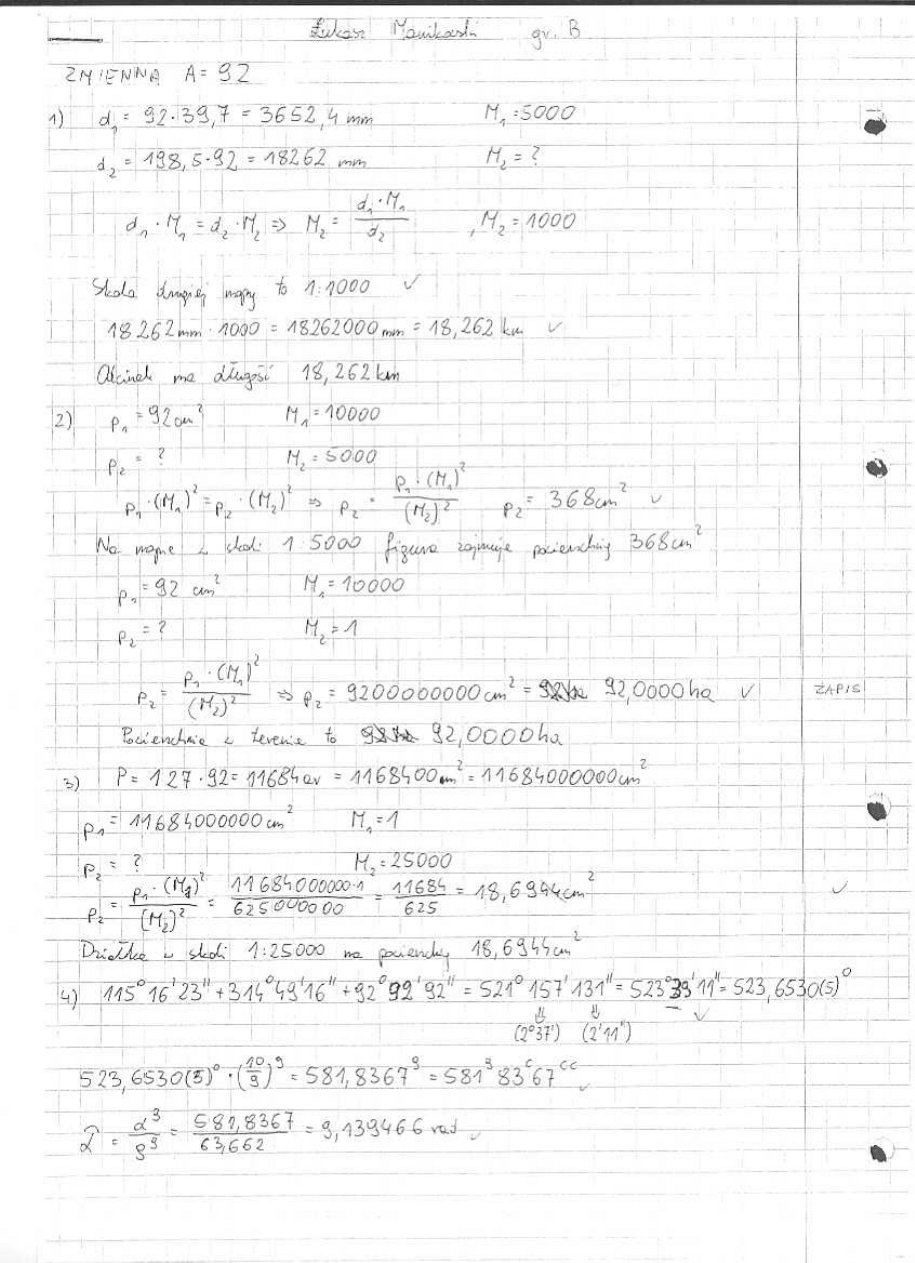 Łukasz Manikasti gr. B
ZMIENNA A = 92
1) d₁ = 92·39,7 = 3652,4 mm M₁ = 5000
d₂ = 198,5·92 = 18262 mm M₂ = ?
d₁·M₁ = d₂·M₂ ⇒ M₂ = d₁·M₁ / d₂ , M₂ = 1000
Skala drugiej mapy to 1:1000 ✓
18262 mm · 1000 = 18262000 mm = 18,262 km ✓
Odcinek ma długość 18,262 km
2) p₁ = 92 cm² M₁ = 10000
p₂ = ? M₂ = 5000
p₁·(M₁)² = p₂·(M₂)² ⇒ p₂ = p₁·(M₁)² / (M₂)² p₂ = 368 cm² ✓
Na mapie w skali 1:5000 figura zajmuje powierzchnię 368 cm²
p₁ = 92 cm² M₁ = 10000
p₂ = ? M₂ = 1
p₂ = p₁·(M₁)² / (M₂)² ⇒ p₂ = 9200000000 cm² = 92,0000 ha ✓ ZAPIS
Powierzchnia w terenie to 92,0000 ha
3) P = 127·92 = 11684 ar = 1168400 m² = 11684000000 cm²
p₁ = 11684000000 cm² M₁ = 1
p₂ = ? M₂ = 25000
p₂ = p₁·(M₁)² / (M₂)² = 11684000000·1 / 625000000 = 11684 / 625 = 18,6944 cm² ✓
Działka w skali 1:25000 ma powierzchnię 18,6944 cm²
4) 115° 16' 23'' + 314° 49' 16'' + 92° 92' 92'' = 521° 157' 131'' = 523° 39' 11'' = 523,6530(5)°
⇓ ⇓ ✓
(2°37') (2'11'')
523,6530(5)° · (10/9)ᵍ = 581,8367ᵍ = 581ᵍ 83ᶜ 67ᶜᶜ ✓
α̂ = αᵍ / ρᵍ = 581,8367 / 63,662 = 9,139466 rad ✓